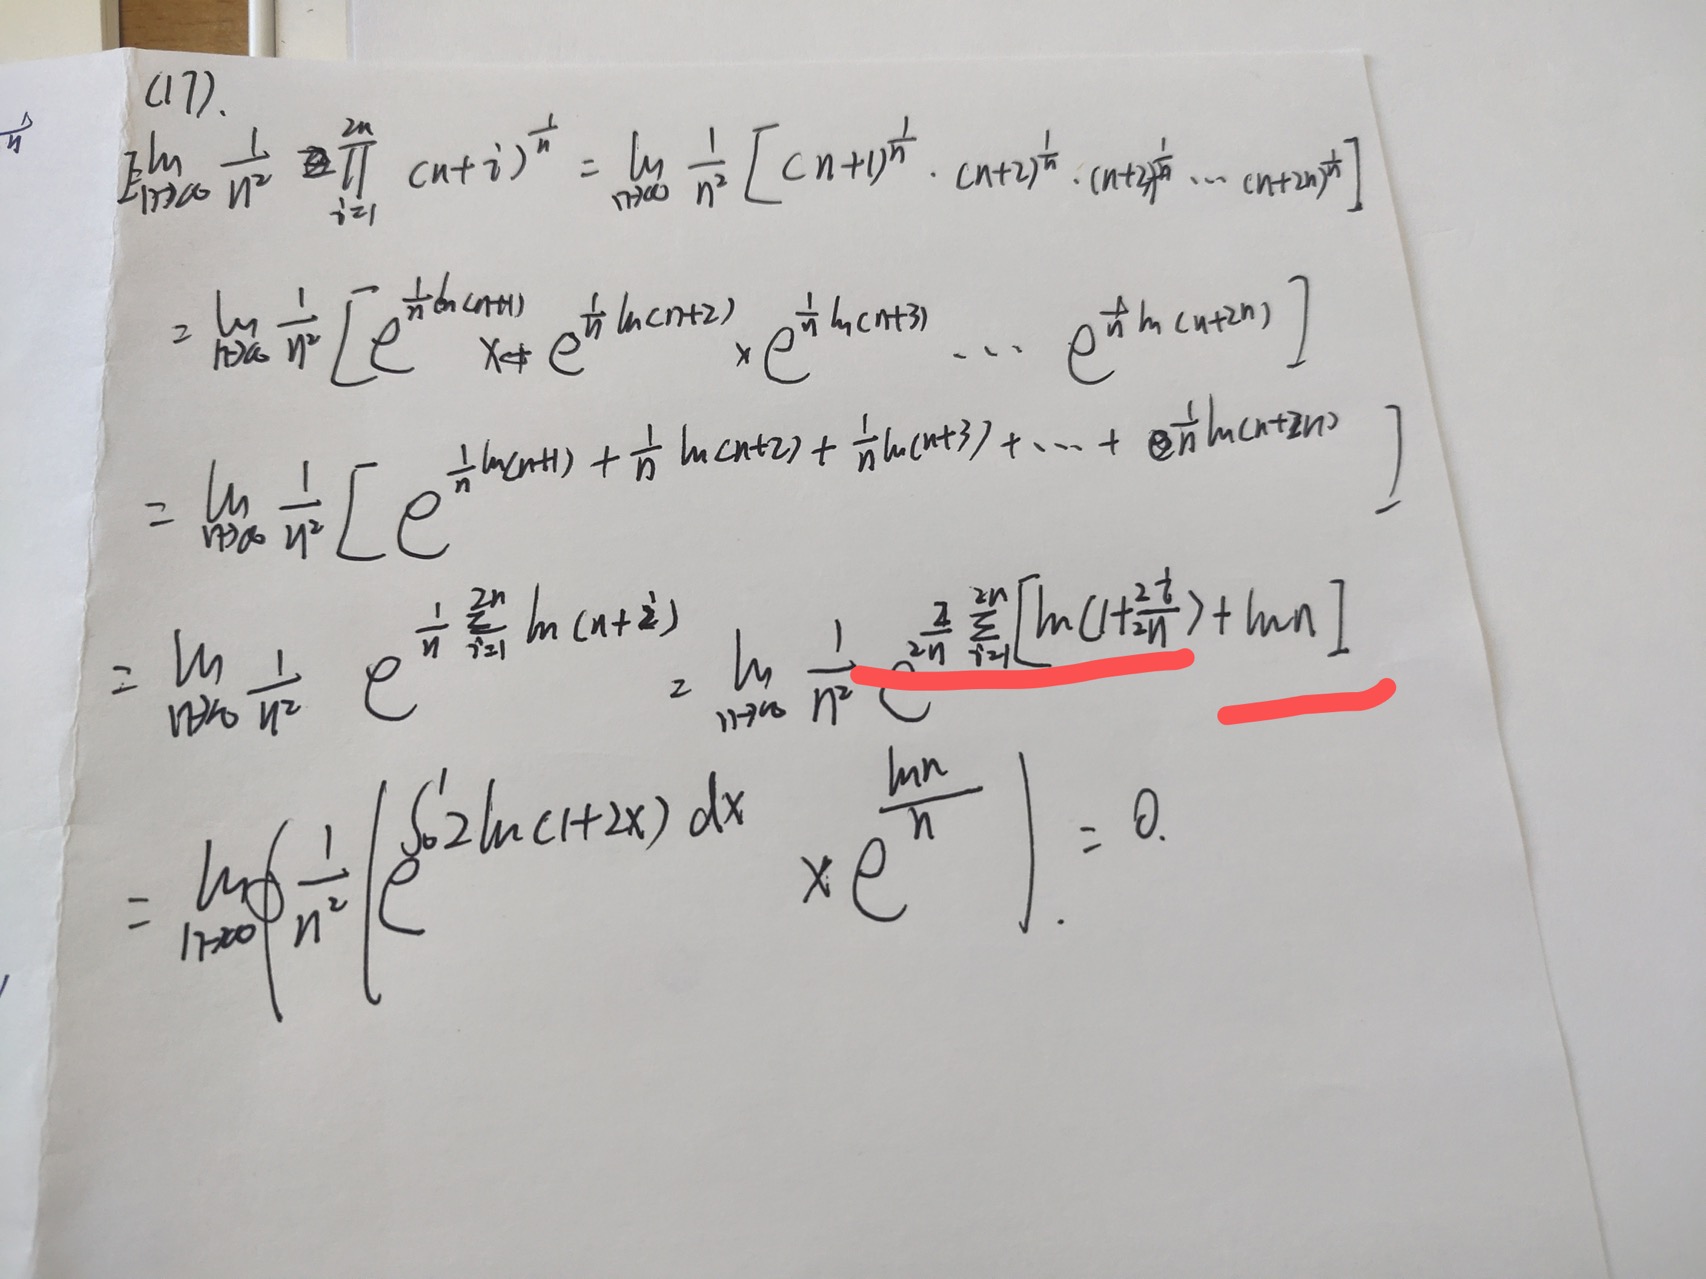 (17).
lim n→∞ 1/n² ∏_{i=1}^{2n} (n+i)^{1/n} = lim n→∞ 1/n² [ (n+1)^{1/n} · (n+2)^{1/n} · (n+2)^{1/n} ... (n+2n)^{1/n} ]
= lim n→∞ 1/n² [ e^{1/n ln(n+1)} × e^{1/n ln(n+2)} × e^{1/n ln(n+3)} ... e^{1/n ln(n+2n)} ]
= lim n→∞ 1/n² [ e^{1/n ln(n+1) + 1/n ln(n+2) + 1/n ln(n+3) + ... + 1/n ln(n+2n)} ]
= lim n→∞ 1/n² e^{1/n ∑_{i=1}^{2n} ln(n+i)} = lim n→∞ 1/n² e^{2/2n ∑_{i=1}^{2n} [ln(1+2i/2n) + ln n]}
= lim n→∞ ( 1/n² ( e^{∫₀¹ 2ln(1+2x) dx} × e^{ln n/n} ) . = 0.